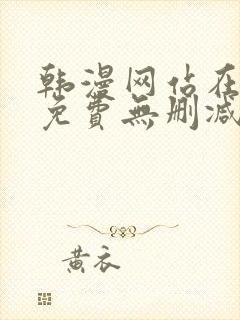 韩漫网站在
免費無删减
黄衣